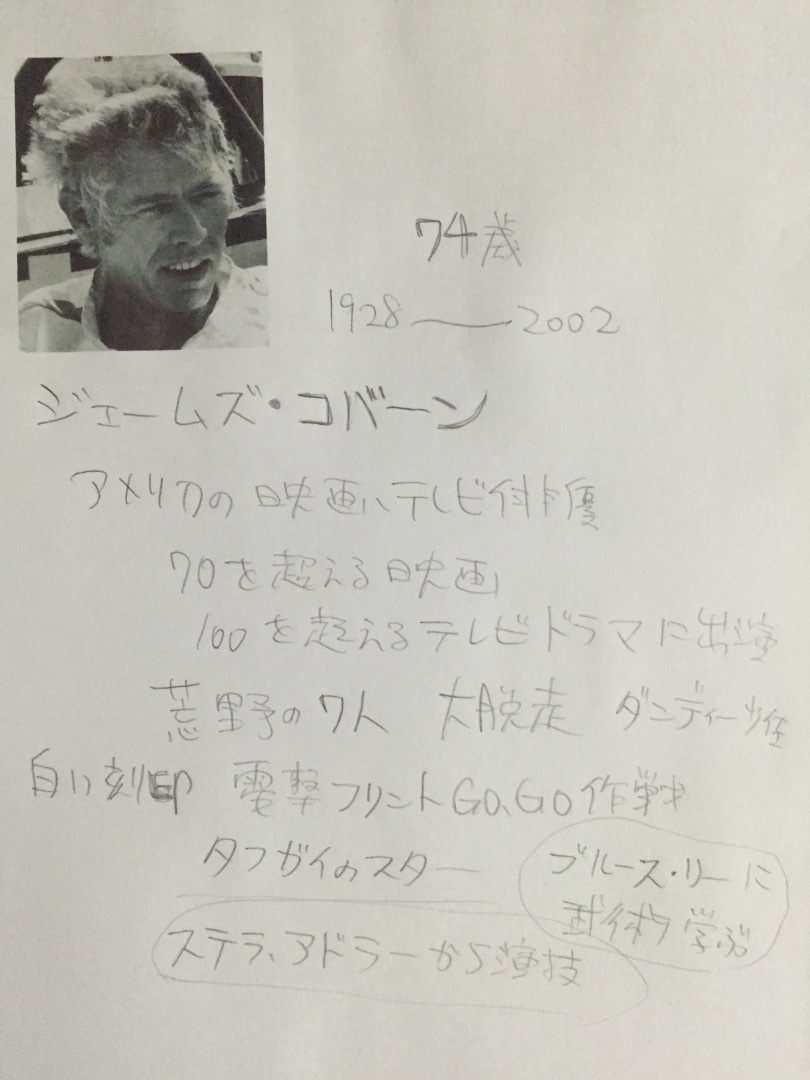 74歳
1928 — 2002
ジェームズ・コバーン
アメリカの映画、テレビ俳優
70を超える映画
100を超えるテレビドラマに出演
荒野の7人 大脱走 ダンディー少佐
白い刻印 電撃フリントGO、GO作戦
タフガイのスター
ブルース・リーに
武術 学ぶ
ステラ、アドラーから演技